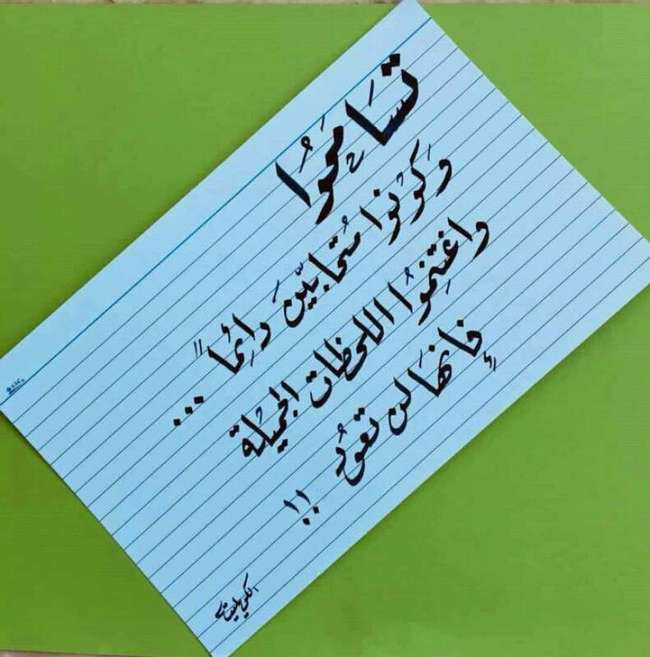 تسَامَحُوا
وَكُوْنوا مُتحابيّنَ دَائِماً ...
واغتِنمُوا اللحظات الجميْلة
فإنهَا لن تعُود !!